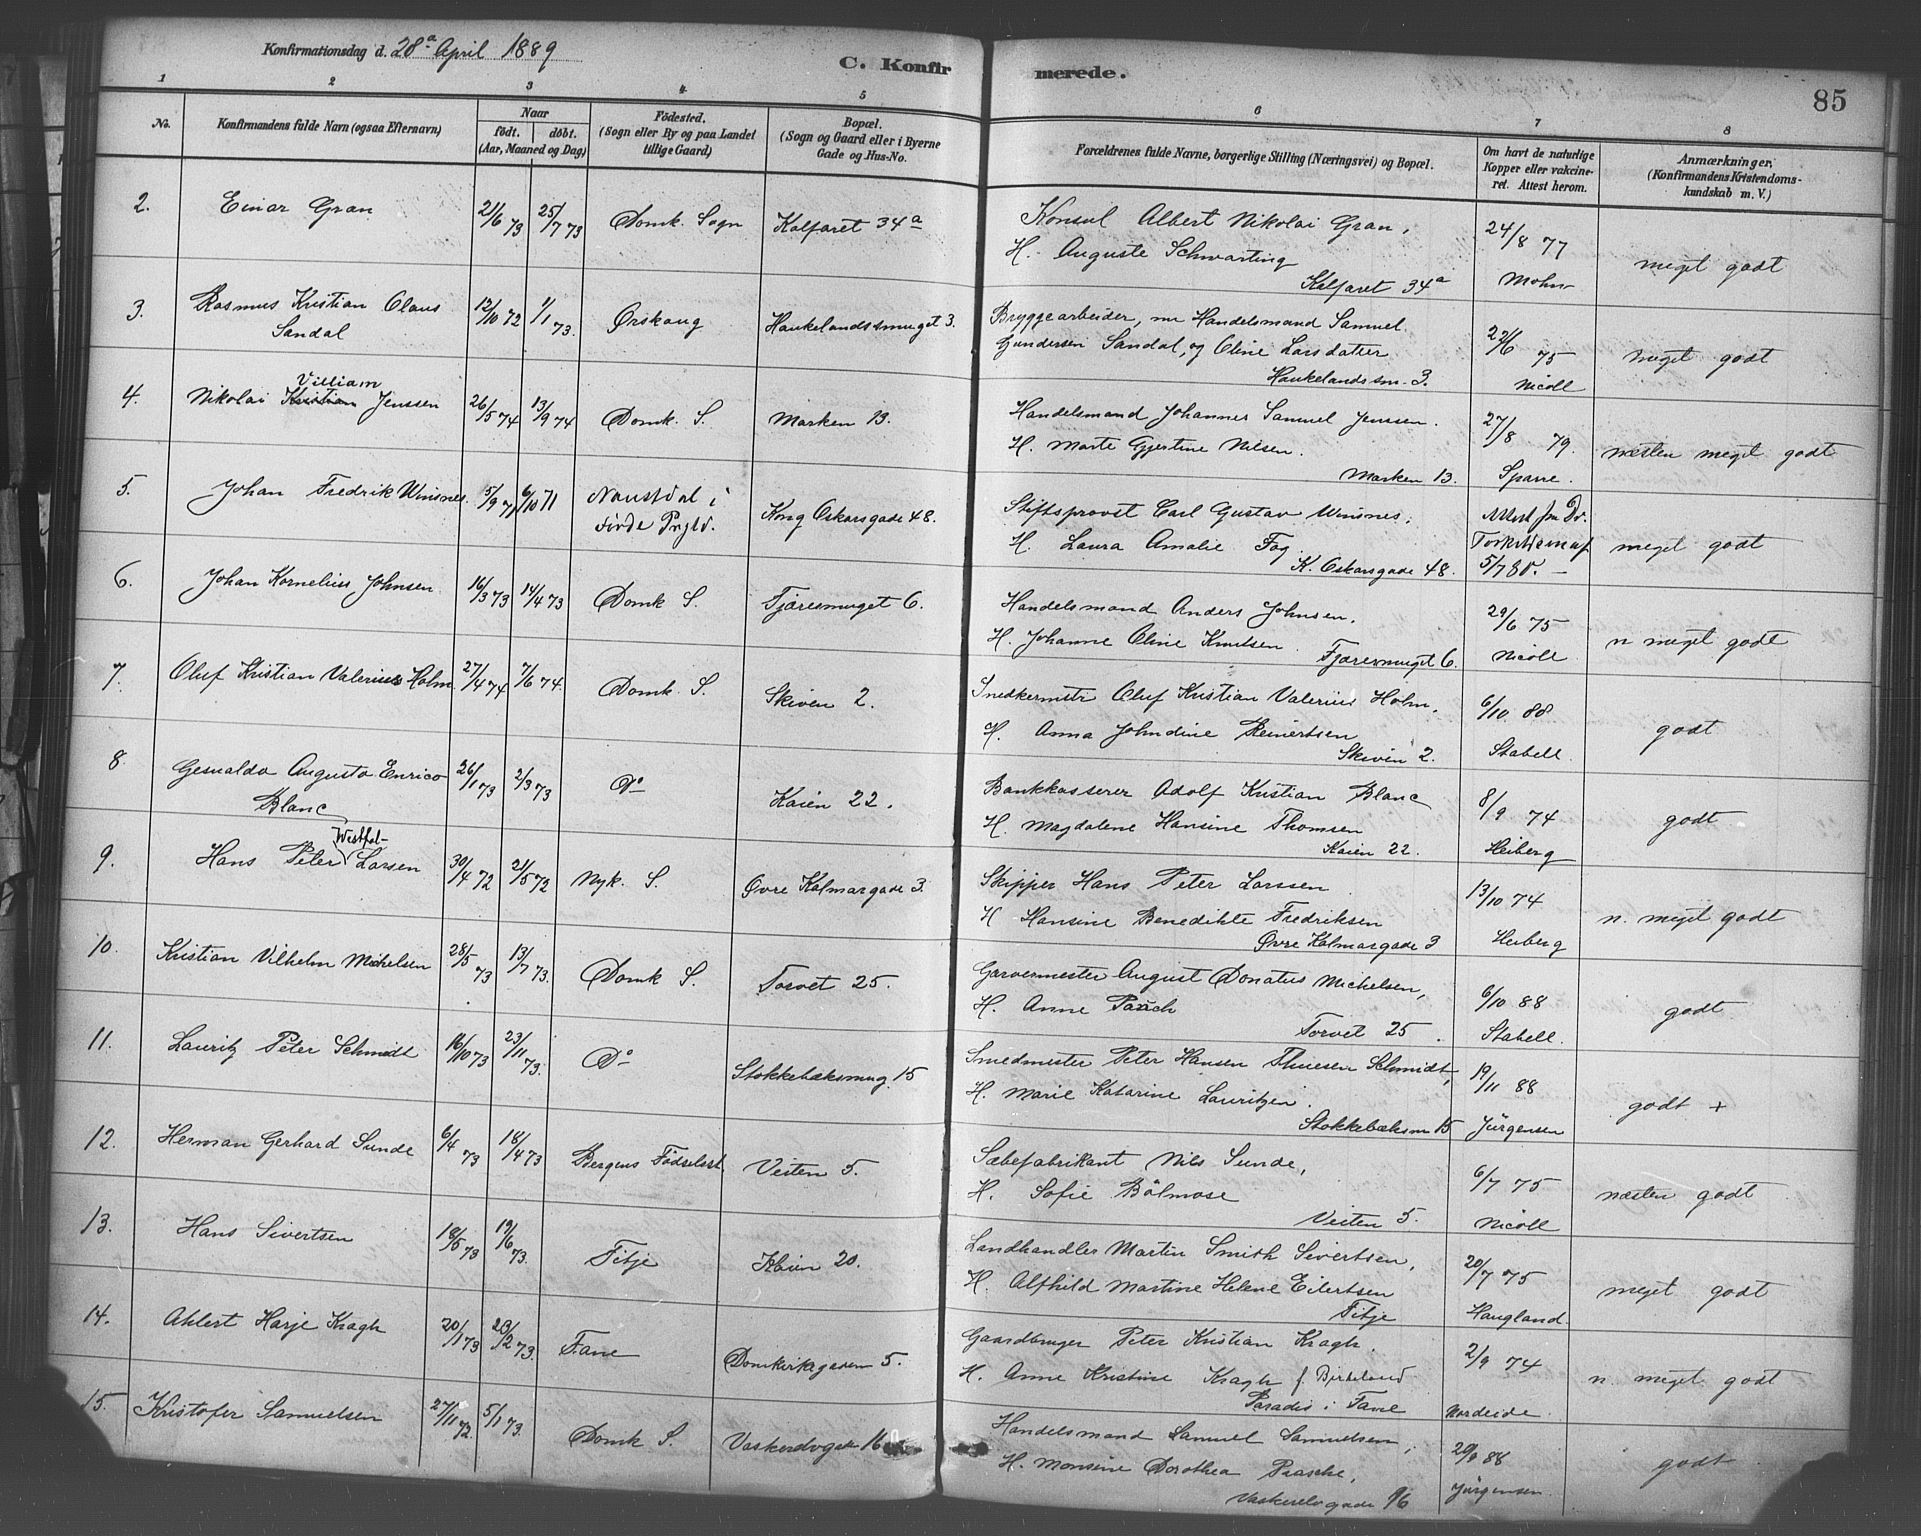 Konfirmationsdag d. 28ª April 1889
C. Konfirmerede.
85
1 2 3 4 5 6 7 8
No.
Konfirmandens fulde Navn (ogsaa Efternavn)
Naar
födt. döbt.
(Aar, Maaned og Dag)
Födested.
(Sogn eller By og paa Landet
tillige Gaard)
Bopæl.
(Sogn og Gaard eller i Byerne
Gade og Hus-No.
Forældrenes fulde Navne, borgerlige Stilling (Næringsvei) og Bopæl.
Om havt de naturlige
Kopper eller vakcine-
ret. Attest herom.
Anmærkninger.
(Konfirmandens Kristendoms-
kundskab m. V.)
2. Einar Gran 21/6 73 25/7 73 Domk. Sogn Kalfaret 34a
Konsul Albert Nikolai Gran,
H. Auguste Schwarting
Kalfaret 34a
24/8 77
Mohn
meget godt
3. Rasmus Kristian Olaus
Sandal
12/10 72 1/1 73. Ørskoug Haukelandssmuget 3.
Bryggearbeider, nu Handelsmand Samuel
Gundersen Sandal, og Oline Larsdatter
Haukelandssm. 3.
22/6 75
Nicoll
meget godt
4. Nikolai Kristian Villiam Jenssen 26/5 74 13/9 74 Domk. S. Marken 13.
Handelsmand Johannes Samuel Jenssen.
H. Marte Gjertine Nilsen.
Marken 13.
27/8 79.
Sparre.
næsten meget godt
5. Johan Fredrik Winsnes 5/9 71 6/10 71 Naustdal i
Förde Prgld. Kong Oskarsgade 48.
Stiftsprovst Carl Gustav Winsnes,
H. Laura Amalie Fog
K. Oskarsgade 48.
Attest fra Dr.
5/7 80.
meget godt
6. Johan Kornelius Johnsen. 16/3 73 14/4 73 Domk S. Tjæresmuget 6.
Handelsmand Anders Johnsen,
H. Johanne Oline Knutsen
Tjæresmuget 6.
29/6 75
Nicoll
n meget godt
7. Oluf Kristian Valerius Holm 27/4 74 7/6 74. Domk. S. Skiven 2.
Snedkermstr Oluf Kristian Valerius Holm,
H. Anna Johndine Reinertsen
Skiven 2.
6/10 88
Stabell.
godt
8. Gesualdo Augusto Enrico
Blanc
26/1 73 2/3 73 Do Kaien 22.
Bankkasserer Adolf Kristian Blanc
H. Magdalene Hansine Thomsen
Kaien 22.
8/9 74
Heiberg
godt
9. Hans Peter Westfal- Larsen 30/4 72 21/5 72 Nyk. S. Øvre Kalmargade 3.
Skipper Hans Peter Larssen
H Hansine Benedikte Fredriksen
Øvre Kalmargade 3
13/10 74
Heiberg
n. meget godt
10. Kristian Vilhelm Michelsen 28/5 73 13/7 73. Domk S. Torvet 25.
Garvermester August Donatus Michelsen,
H. Anne Pasch
Torvet 25.
6/10 88
Stabell.
godt
11. Lauritz Peter Schmidt 16/10 73 23/11 73. Do Stokkebæksmug. 15
Smedmester Peter Hansen Thuesen Schmidt,
H. Marie Katarine Lauritzen.
Stokkebæksm 15
19/11 88
Jürgensen
godt +
12. Herman Gerhard Sunde 6/4 73 18/4 73 Bergens Födselsst. Veiten 5.
Sæbefabrikant Nils Sunde,
H. Sofie Bölmose
Veiten 5.
6/7 75
Nicoll
næsten godt
13. Hans Sivertsen 18/5 73 19/6 73. Fitje Kaien 20.
Landhandler Martin Smith Sivertsen,
H. Alfhild Martine Helene Eilertsen
Fitje
20/7 75
Haugland.
meget godt
14. Ahlert Harje Kragh 20/1 73 23/2 73. Fane Domkirkegaden 5.
Gaardbruger Peter Kristian Kragh.
H. Anne Kristine Kragh f. Birkeland
Paradis i Fane
2/9 74
Nordeide
n. meget godt
15. Kristofer Samuelsen 27/11 72. 5/1 73. Domk S. Vaskerelvgaden 16
Handelsmand Samuel Samuelsen,
H. Monsine Dorothea Prasche,
Vaskerelvgade 16
88
Jürgensen.
godt